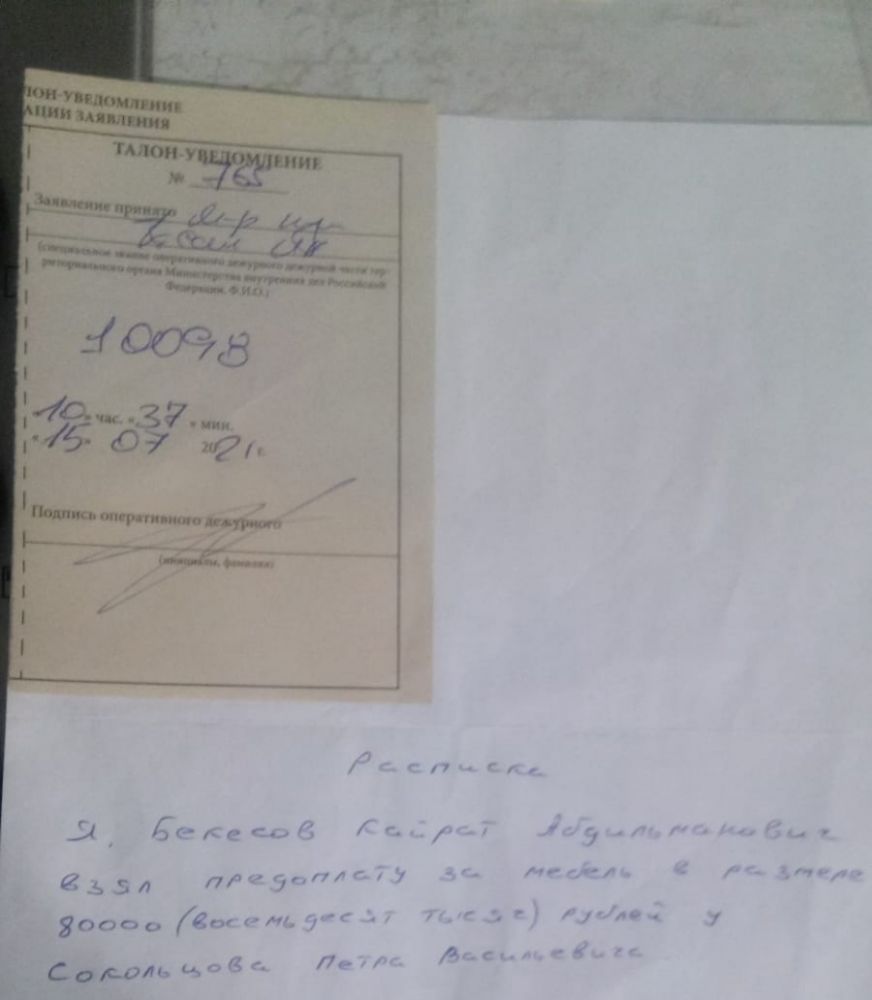 ЛОН-УВЕДОМЛЕНИЕ
АЦИИ ЗАЯВЛЕНИЯ
ТАЛОН-УВЕДОМЛЕНИЕ
№ 765
Заявление принято
(специальное звание оперативного дежурного дежурной части тер-
риториального органа Министерства внутренних дел Российской
Федерации, Ф.И.О.)
10098
«10» час. «37» мин.
«15» 07 2021 г.
Подпись оперативного дежурного
(инициалы, фамилия)
Расписка
Я, Бекесов Кайрат Абдильманович
взял предоплату за мебель в размере
80000 (восемьдесят тысяч) рублей у
Сокольцова Петра Васильевича